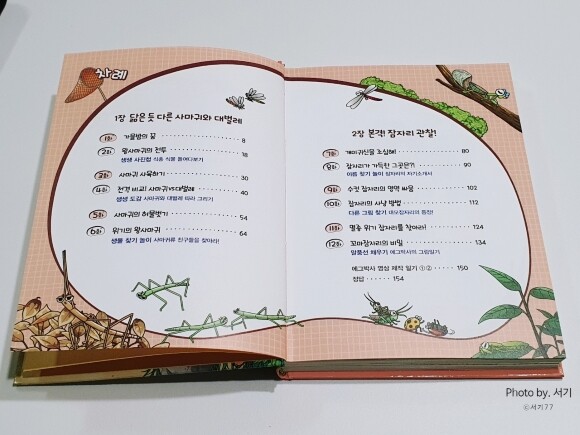 차례
1장 닮은 듯 다른 사마귀와 대벌레
1화 가을밤의 꽃 8
2화 왕사마귀의 전투 18
생생 사진첩 식충 식물 들여다보기
3화 사마귀 사육하기 30
4화 전격 비교! 사마귀VS대벌레 40
생생 도감 사마귀와 대벌레 따라 그리기
5화 사마귀의 허물벗기 54
6화 위기의 왕사마귀 64
생물 찾기 놀이 사마귀류 친구들을 찾아라!
2장 본격! 잠자리 관찰!
7화 개미귀신을 조심해! 80
8화 잠자리가 가득한 그곳은?! 90
이름 찾기 놀이 잠자리의 자기소개서
9화 수컷 잠자리의 영역 싸움 102
10화 잠자리의 사냥 방법 112
다른 그림 찾기 대모잠자리의 등장!
11화 멸종 위기 잠자리를 찾아라! 124
12화 꼬마잠자리의 비밀 134
말풍선 채우기 에그박사의 그림일기
에그박사 영상 제작 일기 ①② 150
정답 154
Photo by. 서기
ⓒ서기77